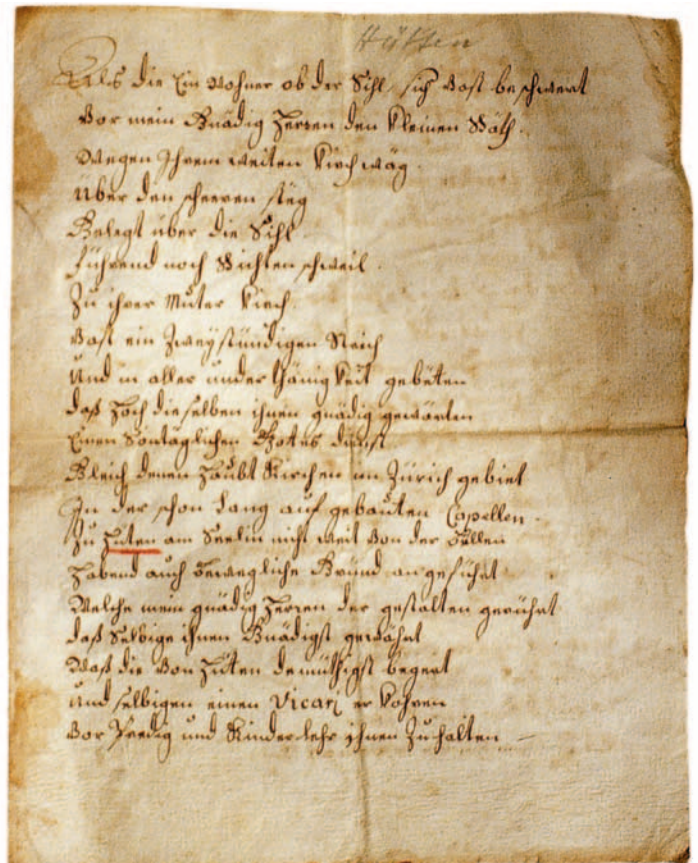 Hütten
Als die Ein Wohner ob der Sihl, sich Vast beschwert
Vor mein Gnädig Herren den Kleinen Räth.
Wegen Ihrem weiten Kirch wäg.
Über den steg
Gelegt über die Sihl
Führend noch Richtenschweil.
Zu ihrer Muter Kirch.
Vast ein Zweystündigen
Und in aller underthänigkeit gebäten
daß Hoch dieselben ihnen gnädig gewärten
Einen Sontäglichen Gottes dienst
Gleich denen Haubt Kirchen im Zürich gebiet
In der schon Lang auf gebauten Capellen.
Zu Hüten am Seelin nicht weit Von der Bellen
Habend auch bewegliche Gründ angeführt
Welche mein gnädig Herren der gestalten gerührt
daß Selbige ihnen Gnädigst gewährt
Waß die Von Hüten demüthigst begert
und selbigen einen Vicari er Kohren
Vor Predig und Kinderlehr ihnen Zu halten –